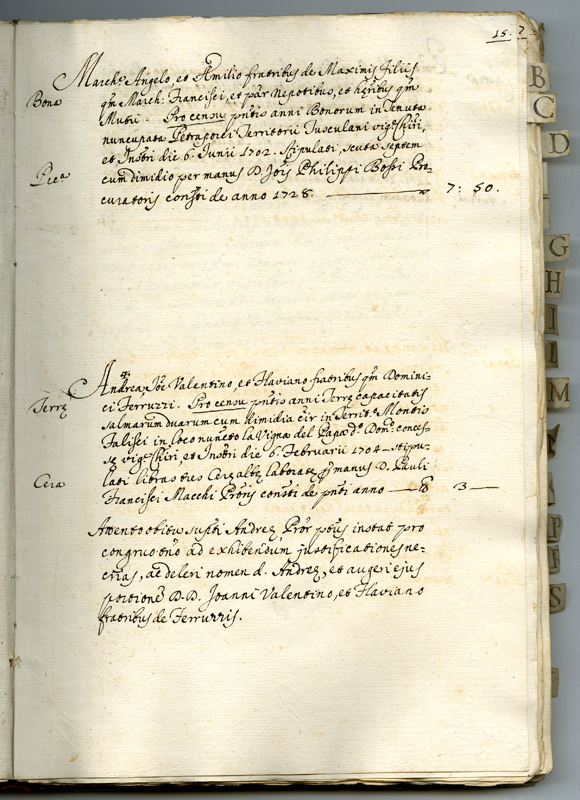 15. 7
March.e Angelo, et Emilio fratribus de Maximis Filijs
Bona
qm̄ March: Francisci, et par̄ Nepotibus, et hęribus qm̄
Mutii. Pro censu pn̄tis anni Bonorum in Tenuta
nuncupata Petraporci Territorii Tusculani
et Instri die 6. Junii 1702. Stipulati, scuta septem
cum dimidio per manus D. Jois Philippi Bossi Pro=
curatoris consti de anno 1728. 7: 50.
Andrea, Joe Valentino, et Flaviano fratribus qm̄ Domini=
Terrę
ci Ferruzzi. Pro censu pn̄tis anni Terrę capacitatis
salmarum duarum cum dimidia cir in Territ.o Montis
Falisci in loco nunc.to la Vigna del Papa d.o Dom. conces=
et Instri die 6. Februarii 1704 stipu=
lati libras tres Cerę albę laboratę p manus D. Pauli
Cera
Francisci Macchi Proris consti de pn̄ti anno — ℔ 3 —
Attento obitu Andreę, Pror instat pro
congruo tn̄o ad exhibendum justificationes ne=
crias, ac deleri nomen d. Andreę, et augeri ejus
portionē D.D. Joanni Valentino, et Flaviano
fratribus de Ferruzzis.
B
C
D
G
H
I
L
M
P
S